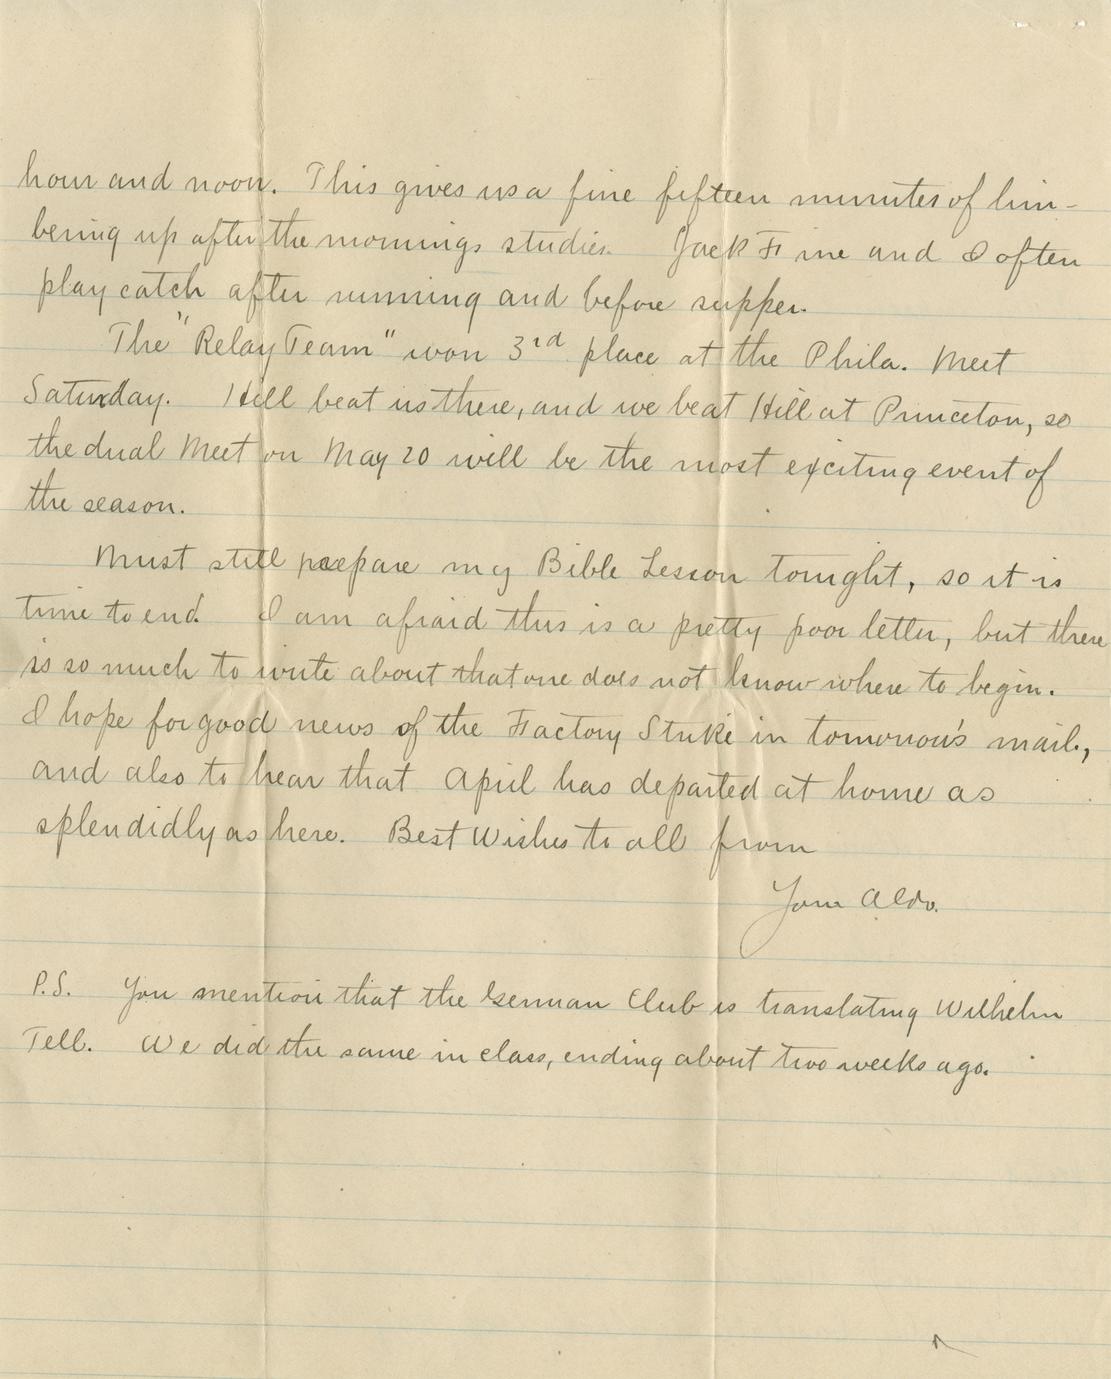 hour and noon. This gives us a fine fifteen minutes of lim-
bering up after the mornings studies. Jack Fine and I often
play catch after running and before supper.
The "Relay Team" won 3rd place at the Phila. Meet
Saturday. Hill beat us there, and we beat Hill at Princeton, so
the dual Meet on May 20 will be the most exciting event of
the season.
Must still prepare my Bible Lesson tonight, so it is
time to end. I am afraid this is a pretty poor letter, but there
is so much to write about that one does not know where to begin.
I hope for good news of the Factory Strike in tomorrow's mail,
and also to hear that April has departed at home as
splendidly as here. Best Wishes to all from
Your Aldo.
P.S. You mention that the German Club is translating Wilhelm
Tell. We did the same in class, ending about two weeks ago.